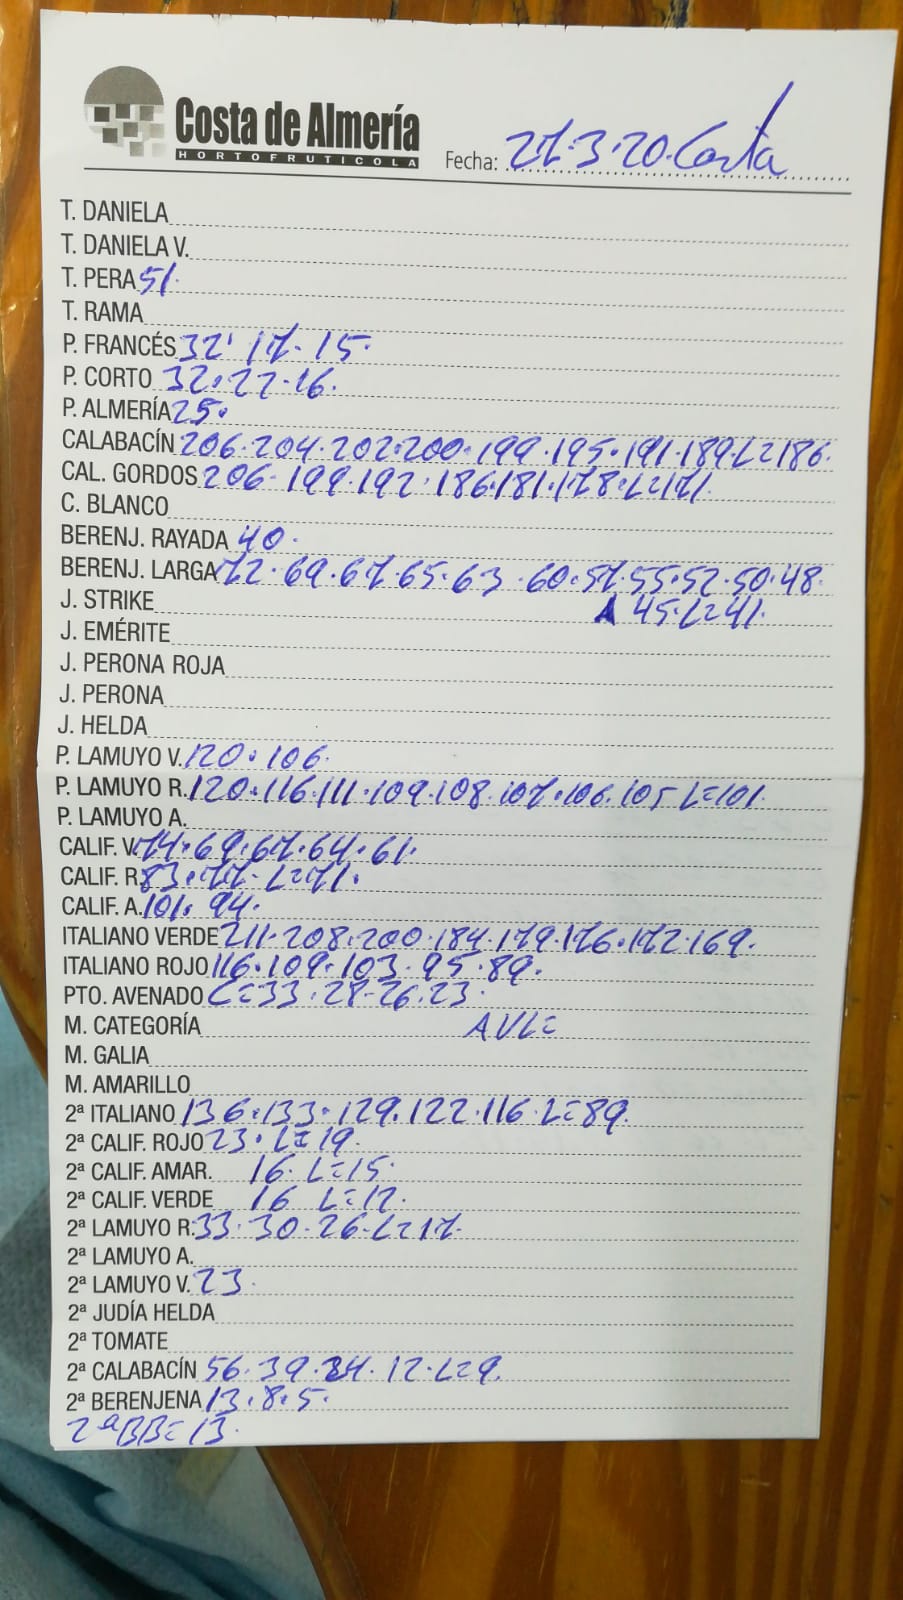 Costa de Almería
HORTOFRUTICOLA
Fecha: 27.3.20. Costa
T. DANIELA
T. DANIELA V.
T. PERA 51.
T. RAMA
P. FRANCÉS 32' 17. 15.
P. CORTO 32. 22. 16.
P. ALMERÍA 25.
CALABACÍN 206. 204. 202. 200. 199. 195. 191. 189. L=186.
CAL. GORDOS 206. 199. 192. 186. 181. 178. L=171.
C. BLANCO
BERENJ. RAYADA 40.
BERENJ. LARGA 72. 69. 67. 65. 63. 60. 57. 55. 52. 50. 48.
45. L=41.
J. STRIKE
J. EMÉRITE
J. PERONA ROJA
J. PERONA
J. HELDA
P. LAMUYO V. 120. 106.
P. LAMUYO R. 120. 116. 111. 109. 108. 107. 106. 105 L=101.
P. LAMUYO A.
CALIF. V. 74. 69. 67. 64. 61.
CALIF. R. 83. 77. L=71.
CALIF. A. 101. 94.
ITALIANO VERDE 211. 208. 200. 184. 179. 176. 172. 169.
ITALIANO ROJO 116. 109. 103. 95. 89.
PTO. AVENADO C=33. 28. 26. 23.
M. CATEGORÍA AVL=
M. GALIA
M. AMARILLO
2ª ITALIANO 136. 133. 129. 122. 116. L=89.
2ª CALIF. ROJO 23. L=19.
2ª CALIF. AMAR. 16. L=15.
2ª CALIF. VERDE 16 L=12.
2ª LAMUYO R. 33. 30. 26. L=17.
2ª LAMUYO A.
2ª LAMUYO V. 23.
2ª JUDÍA HELDA
2ª TOMATE
2ª CALABACÍN 56. 39. 34. 12. L=9.
2ª BERENJENA 13. 8. 5.
2ªBB=13.